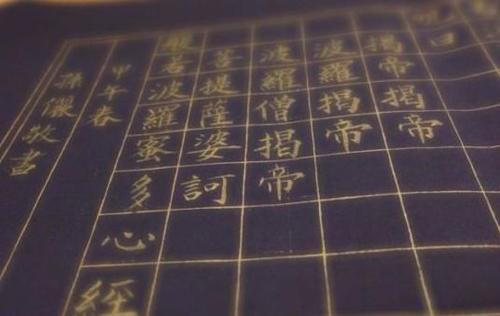 曰
揭帝揭帝
波羅揭帝
波羅僧揭帝
菩提薩婆訶
般若波羅蜜多心經
甲午春
孫儼敬書